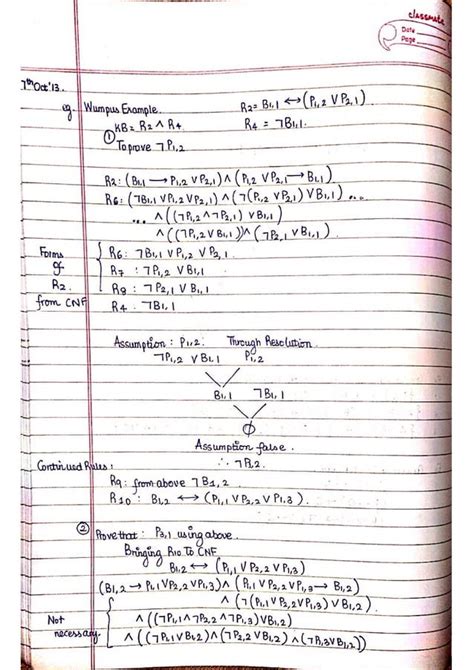 classmate
Date
Page
7th Oct'13.
eg. Wumpus Example. R2 = B1,1 ↔ (P1,2 V P2,1)
KB = R2 ∧ R4. R4 = ¬B1,1
① To prove ¬P1,2
R2: (B1,1 → P1,2 V P2,1) ∧ (P1,2 V P2,1 → B1,1)
R6: (¬B1,1 V P1,2 V P2,1) ∧ (¬(P1,2 V P2,1) V B1,1) ...
... ∧ ((¬P1,2 ∧ ¬P2,1) V B1,1)
∧ ((¬P1,2 V B1,1)) ∧ (¬P2,1 V B1,1).
Forms of R2. from CNF
R6: ¬B1,1 V P1,2 V P2,1
R7: ¬P1,2 V B1,1
R8: ¬P2,1 V B1,1
R4. ¬B1,1
Assumption: P1,2. Through Resolution.
¬P1,2 V B1,1 P1,2
B1,1 ¬B1,1
∅
Assumption false.
Continued Rules: ∴ ¬P1,2.
R9: from above ¬B1,2
R10: B1,2 ↔ (P1,1 V P2,2 V P1,3).
② Prove that: P3,1 using above.
Bringing R10 To CNF
B1,2 ↔ (P1,1 V P2,2 V P1,3)
(B1,2 → P1,1 V P2,2 V P1,3) ∧ (P1,1 V P2,2 V P1,3 → B1,2)
∧ (¬(P1,1 V P2,2 V P1,3) V B1,2)
Not necessary
∧ ((¬P1,1 ∧ ¬P2,2 ∧ ¬P1,3) V B1,2)
∧ ((¬P1,1 V B1,2) ∧ (¬P2,2 V B1,2) ∧ (¬P1,3 V B1,2))